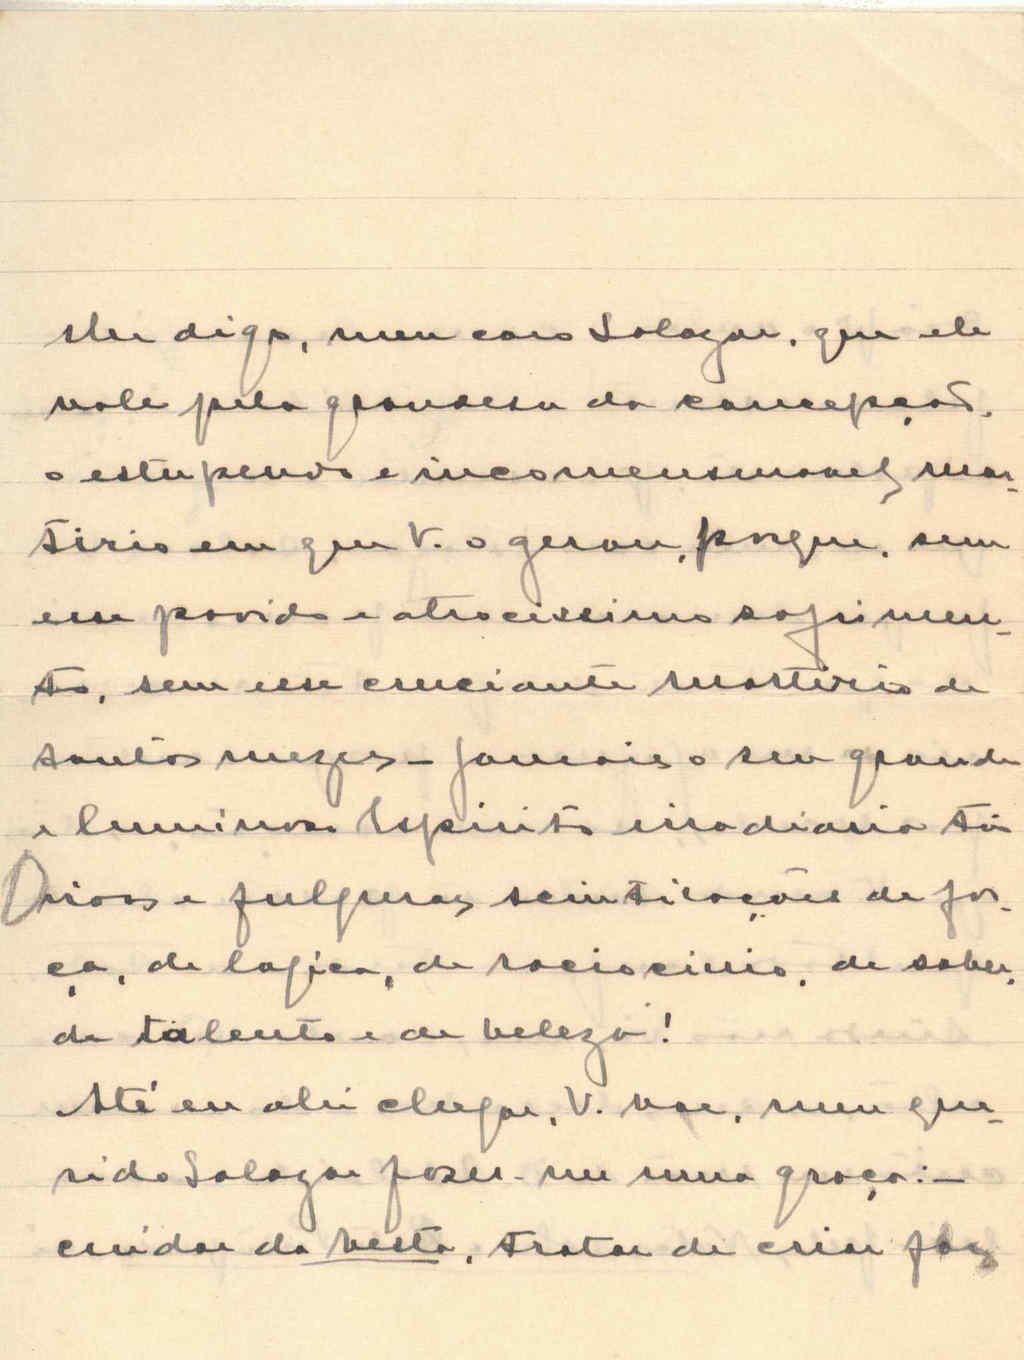 lhe digo, meu caro Salazar, que ele
vale pela grandesa da concepção,
o estupendo e incomensuravel mar-
tirio em que V. o gerou, porque, sem
esse pavido e atrocissimo sofrimen-
to, sem esse cruciante martirio de
santos mezes - jamais o seu grande
e luminoso Espirito irradiaria tão
vivas e fulguras scintilações de for-
ça, de logica, de raciocinio, de saber,
de talento e de beleza!
Até eu ahi chegar, V. vae, meu que-
rido Salazar fazer-me uma graça: -
cuidar da besta, tratar de criar